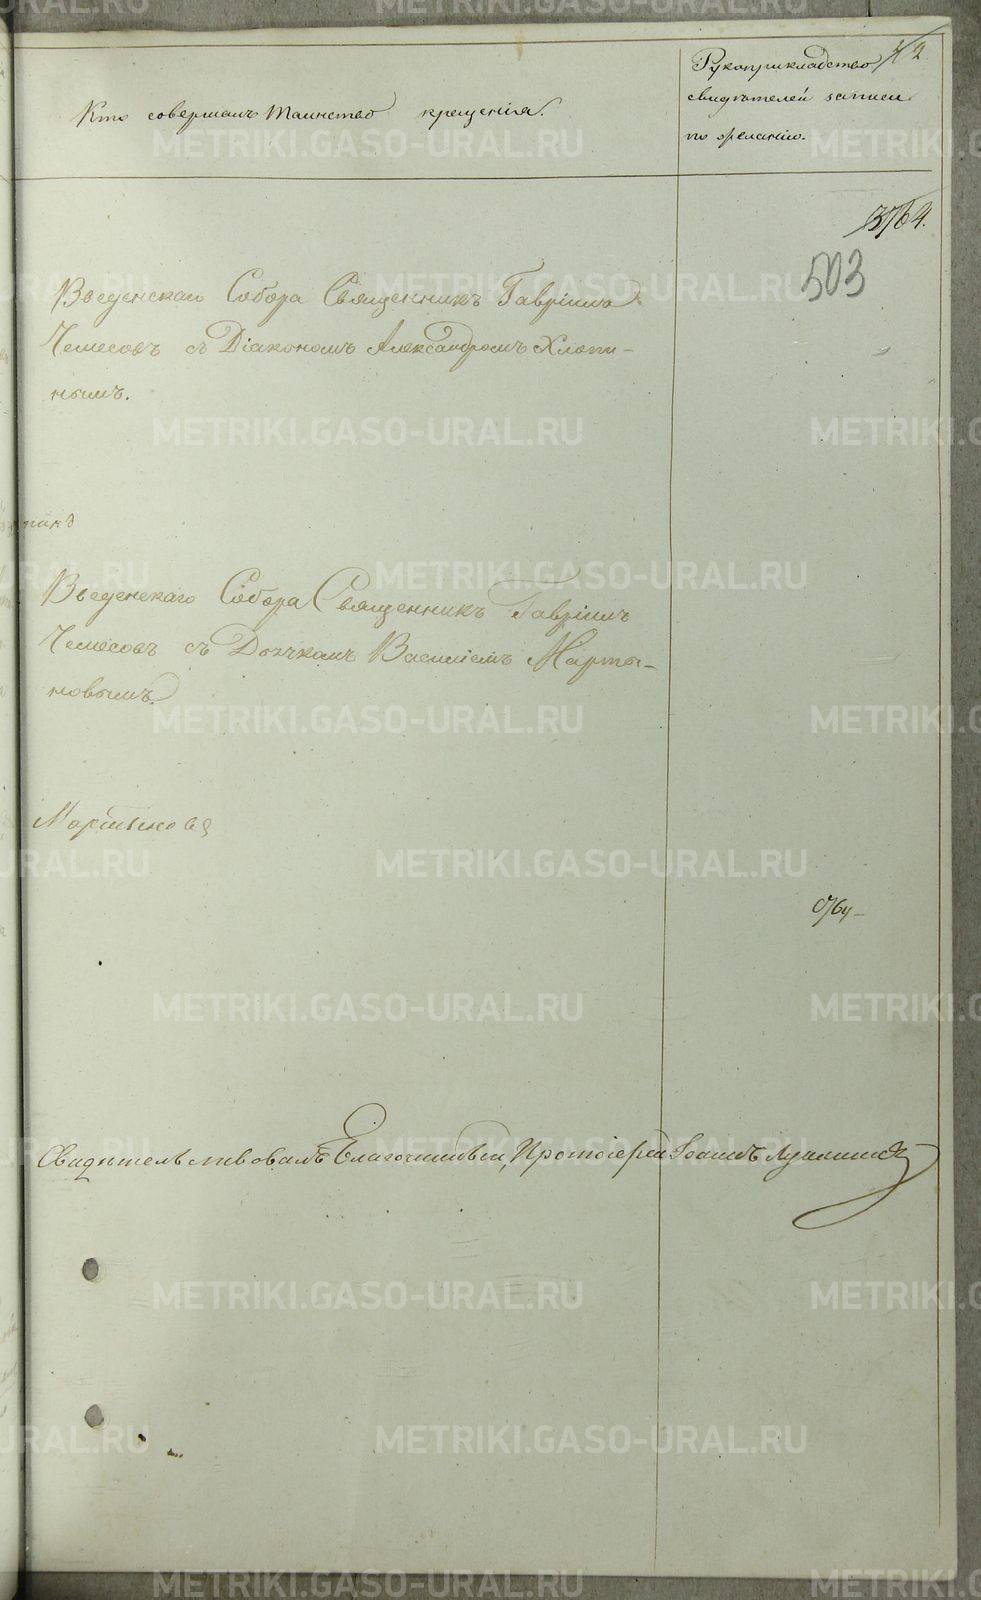 Кто совершалъ таинство крещенія.
Рукоприкладство
свидѣтелей записи
по желанію.
42
3764.
503
Введенскаго Собора Священникъ Гавріилъ
Чемесовъ съ Діакономъ Александромъ Хлопи-
нымъ.
Введенскаго Собора Священникъ Гавріилъ
Чемесовъ съ Дьячкомъ Василіемъ Марты-
новымъ.
Мартыновъ
Свидѣтельствовалъ Благочинный, Протоіерей Іоаннъ
METRIKI.GASO-URAL.RU